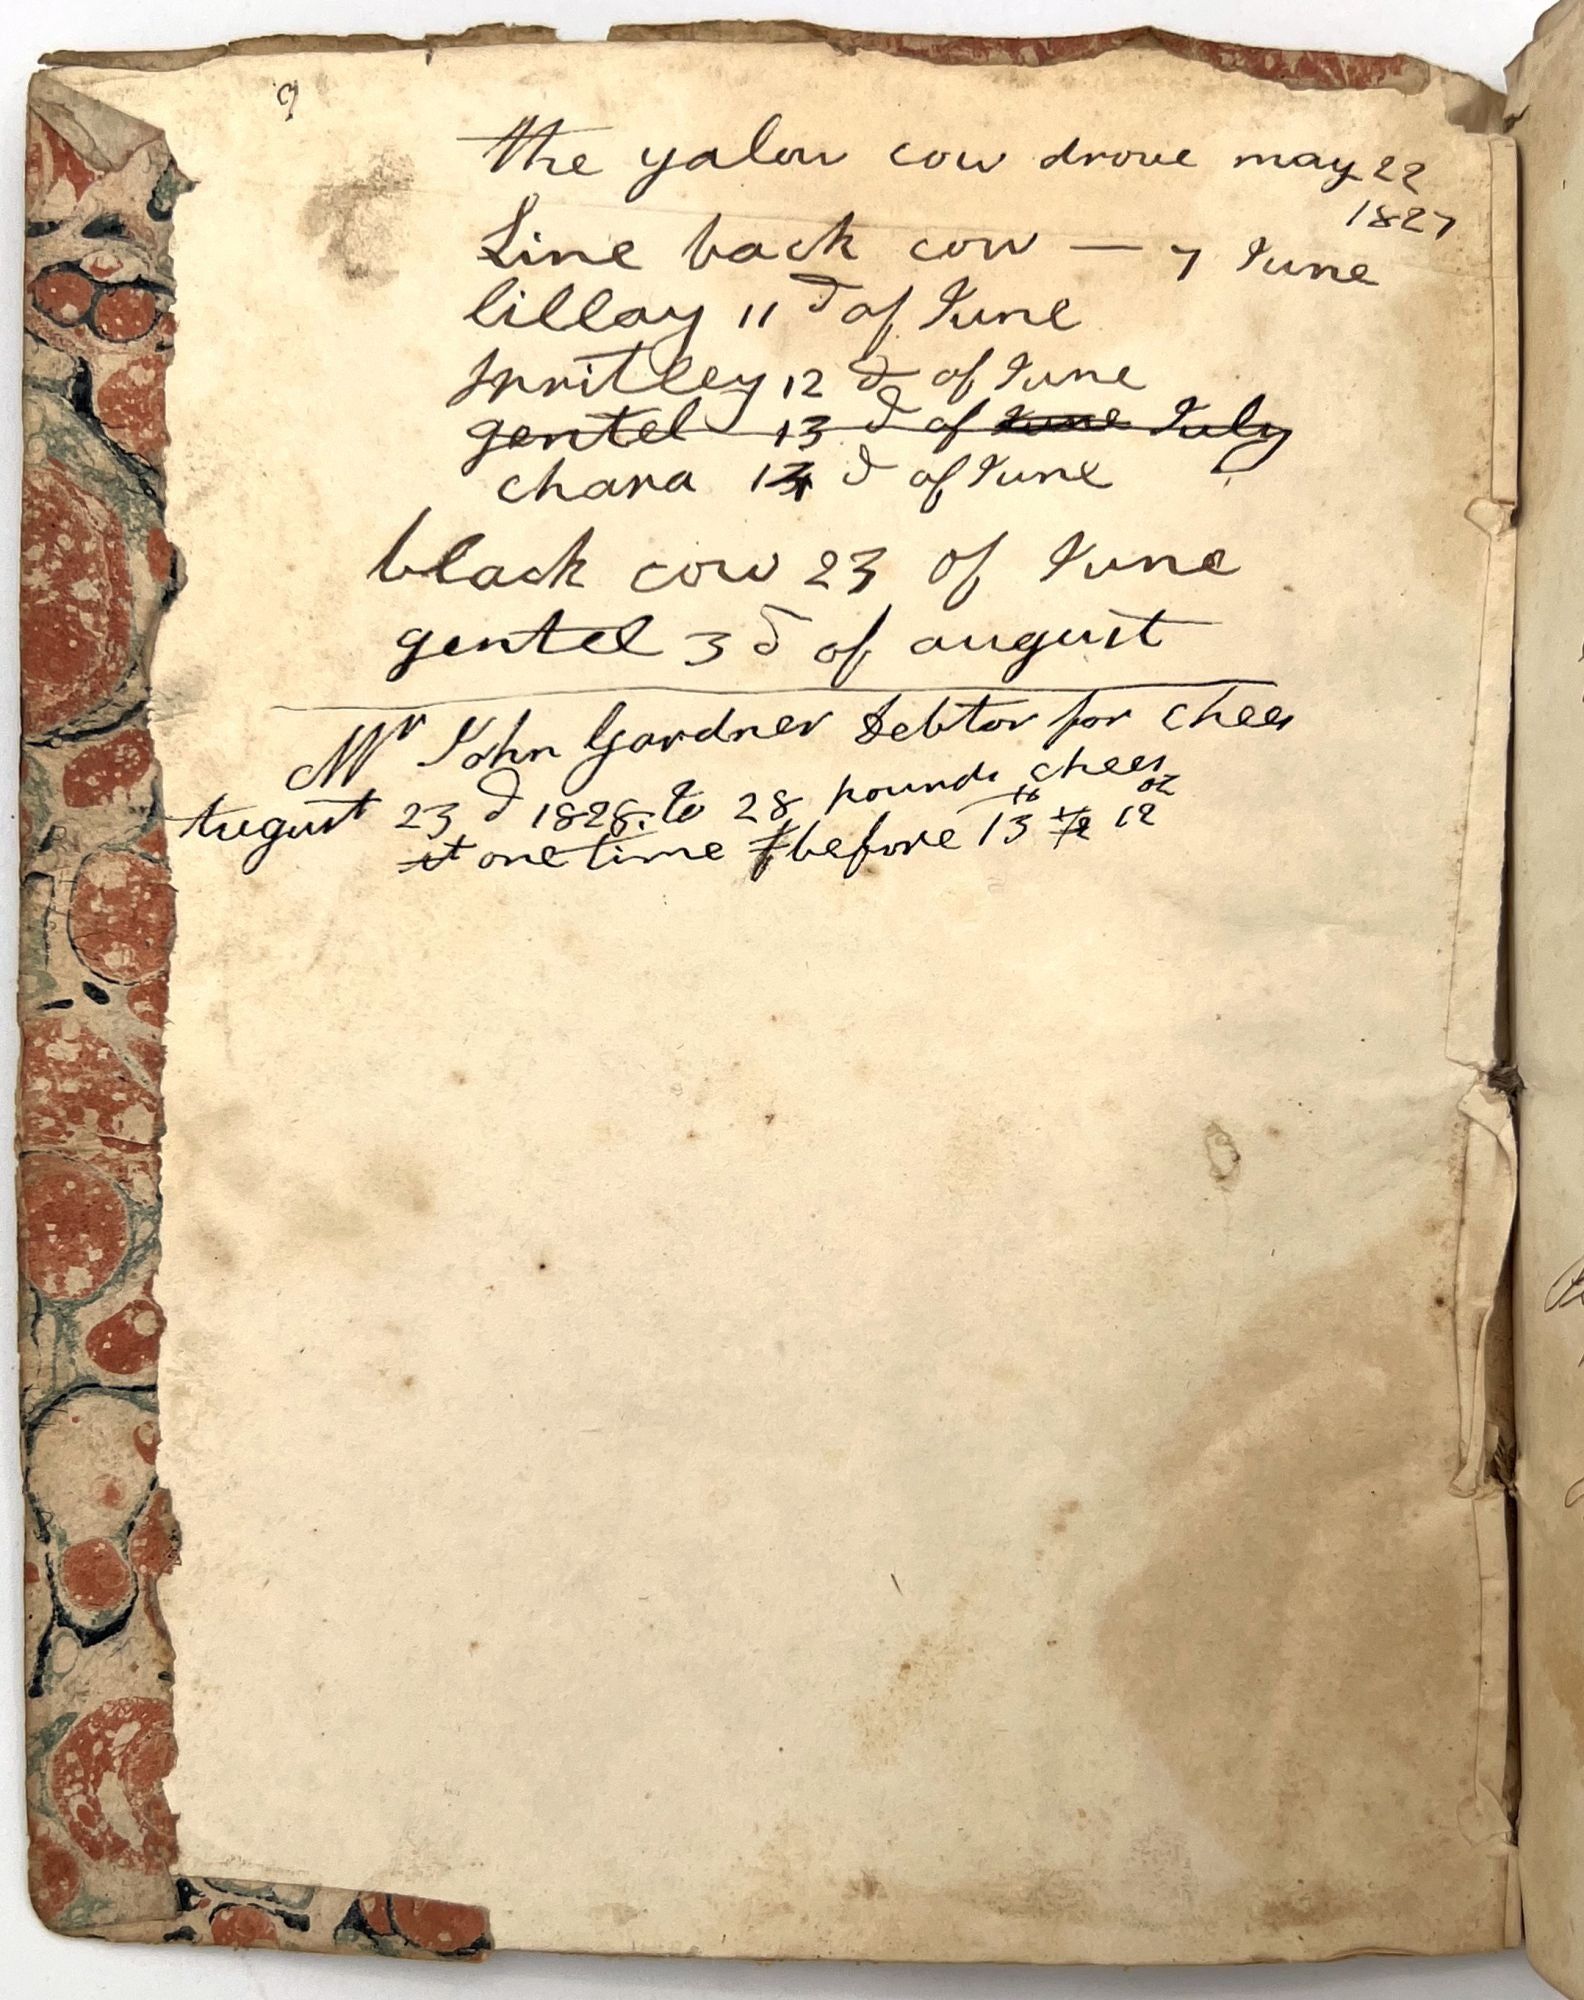 the yalow cow drove may 22
1827
Line back cow — 7 June
lillay 11 d of June
spritley 12 d of June
gentel 13 d of June July
chara 14 d of June
black cow 23 of June
gentel 3 d of august
Mr John Gardner Debtor for chees
August 23 d 1828. to 28 pounds chees
one time before 13 lb 12 oz